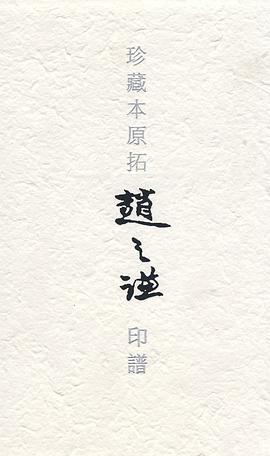 珍藏本原拓趙之謙印譜